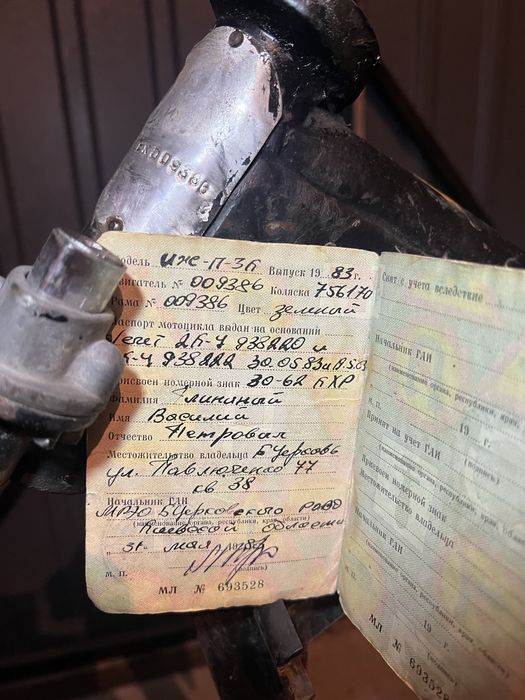 009386
Модель ИЖ-П-3К Выпуск 1983 г.
Двигатель № 009386 Коляска 756170
Рама № 009386 Цвет зелёный
Паспорт мотоцикла выдан на основании
счет 2К-Ч 938220 и
2К-Ч 938222 30.05.83
Присвоен номерной знак 30-62 КХР
Фамилия
Имя Василий
Отчество Петрович
Местожительство владельца
ул. Павлюченко 77
кв 38
Начальник ГАИ
МРЭО
(наименование органа, республики, края, области)
области
„31" мая 1983 г.
(подпись)
м. п.
МЛ № 693528
Снят с учета вследствие
Начальник ГАИ
(наименование органа, республики, края,
19 г.
м. п.
(подпись)
Принят на учет ГАИ
Присвоен номерной знак
Местожительство владельца
Начальник ГАИ
(наименование органа, республики, края, области)
19 г.
(подпись)
МЛ № 693528